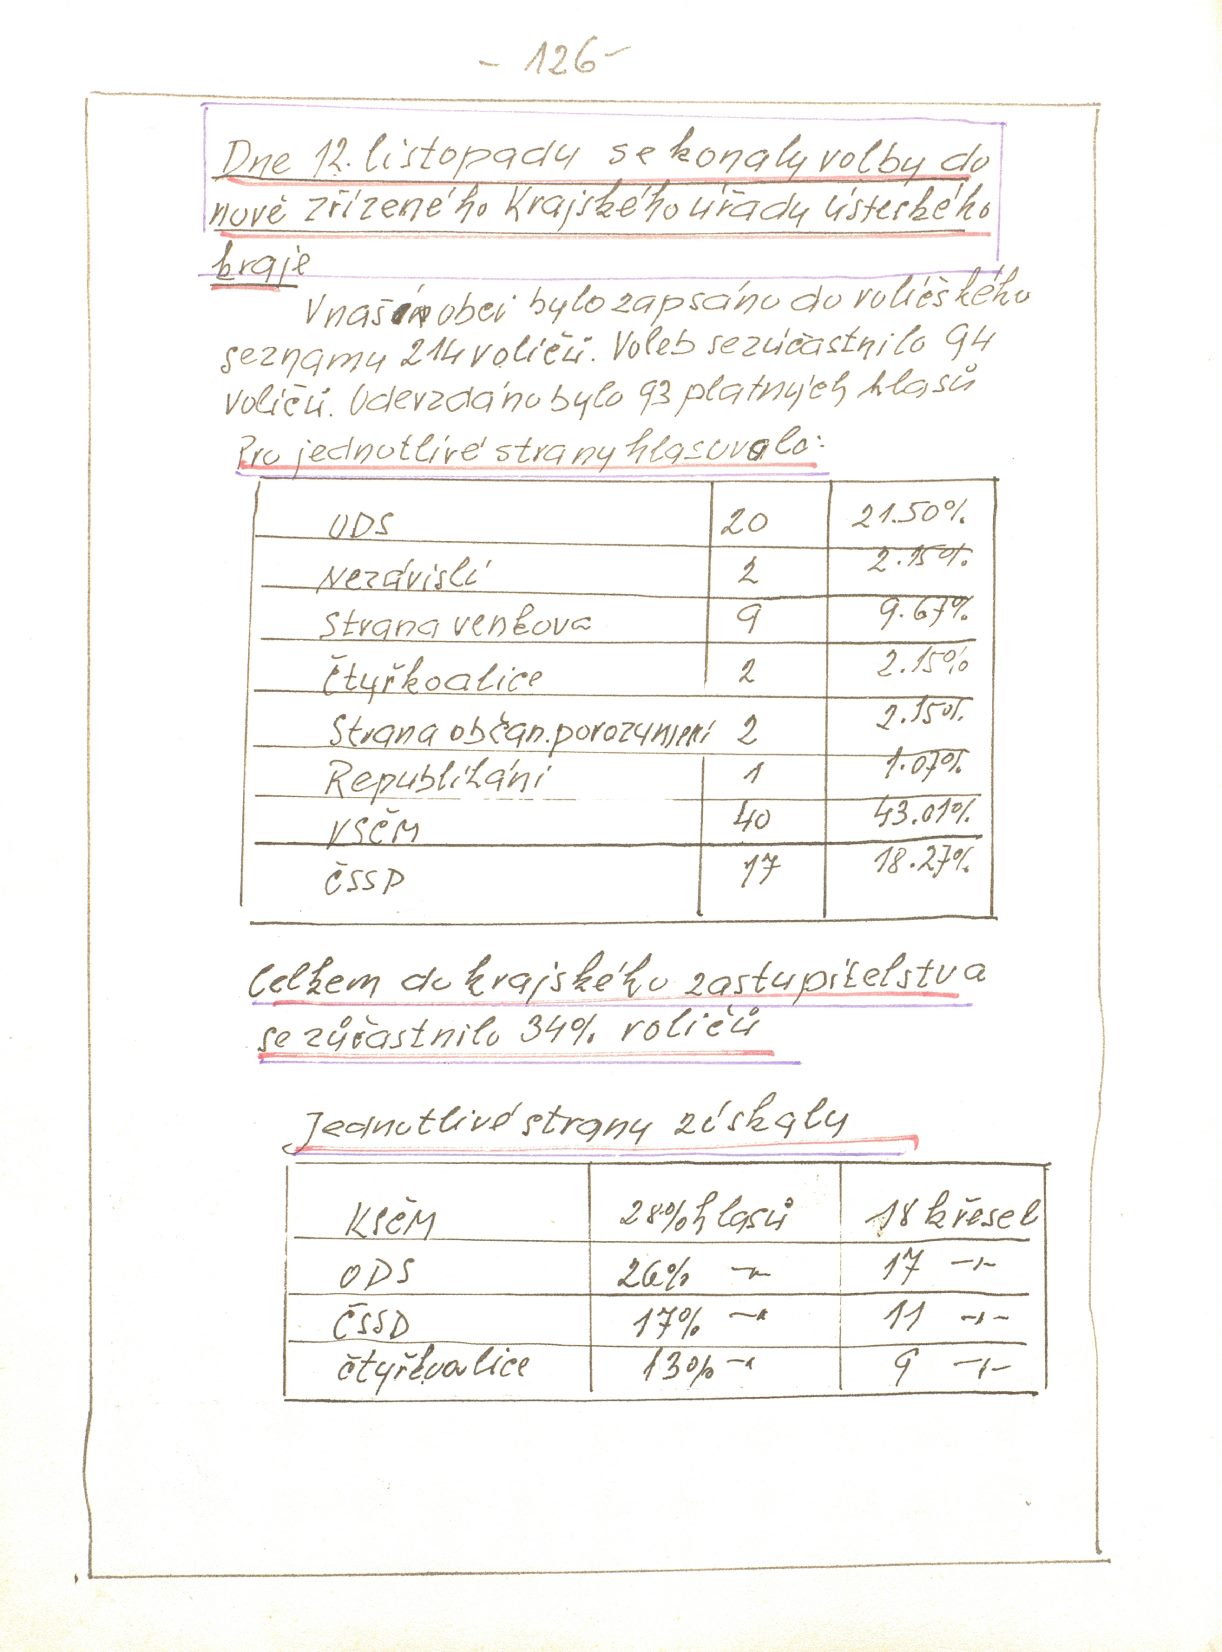 - 126 -
Dne 12. listopadu se konaly volby do
nově zřízeného Krajského úřadu Ústeckého
kraje
V naší obci bylo zapsáno do voličského
seznamu 214 voličů. Voleb se zúčastnilo 94
voličů. Odevzdáno bylo 93 platných hlasů
Pro jednotlivé strany hlasovalo:
ODS 20 21.50%
Nezávislí 2 2.15%
Strana venkova 9 9.67%
Čtyřkoalice 2 2.15%
Strana občan. porozumění 2 2.15%
Republikáni 1 1.07%
KSČM 40 43.01%
ČSSD 17 18.27%
Celkem do krajského zastupitelstva
se zúčastnilo 34% voličů
Jednotlivé strany získaly
KSČM 28% hlasů 18 křesel
ODS 26% -"- 17 -"-
ČSSD 17% -"- 11 -"-
čtyřkoalice 13% -"- 9 -"-